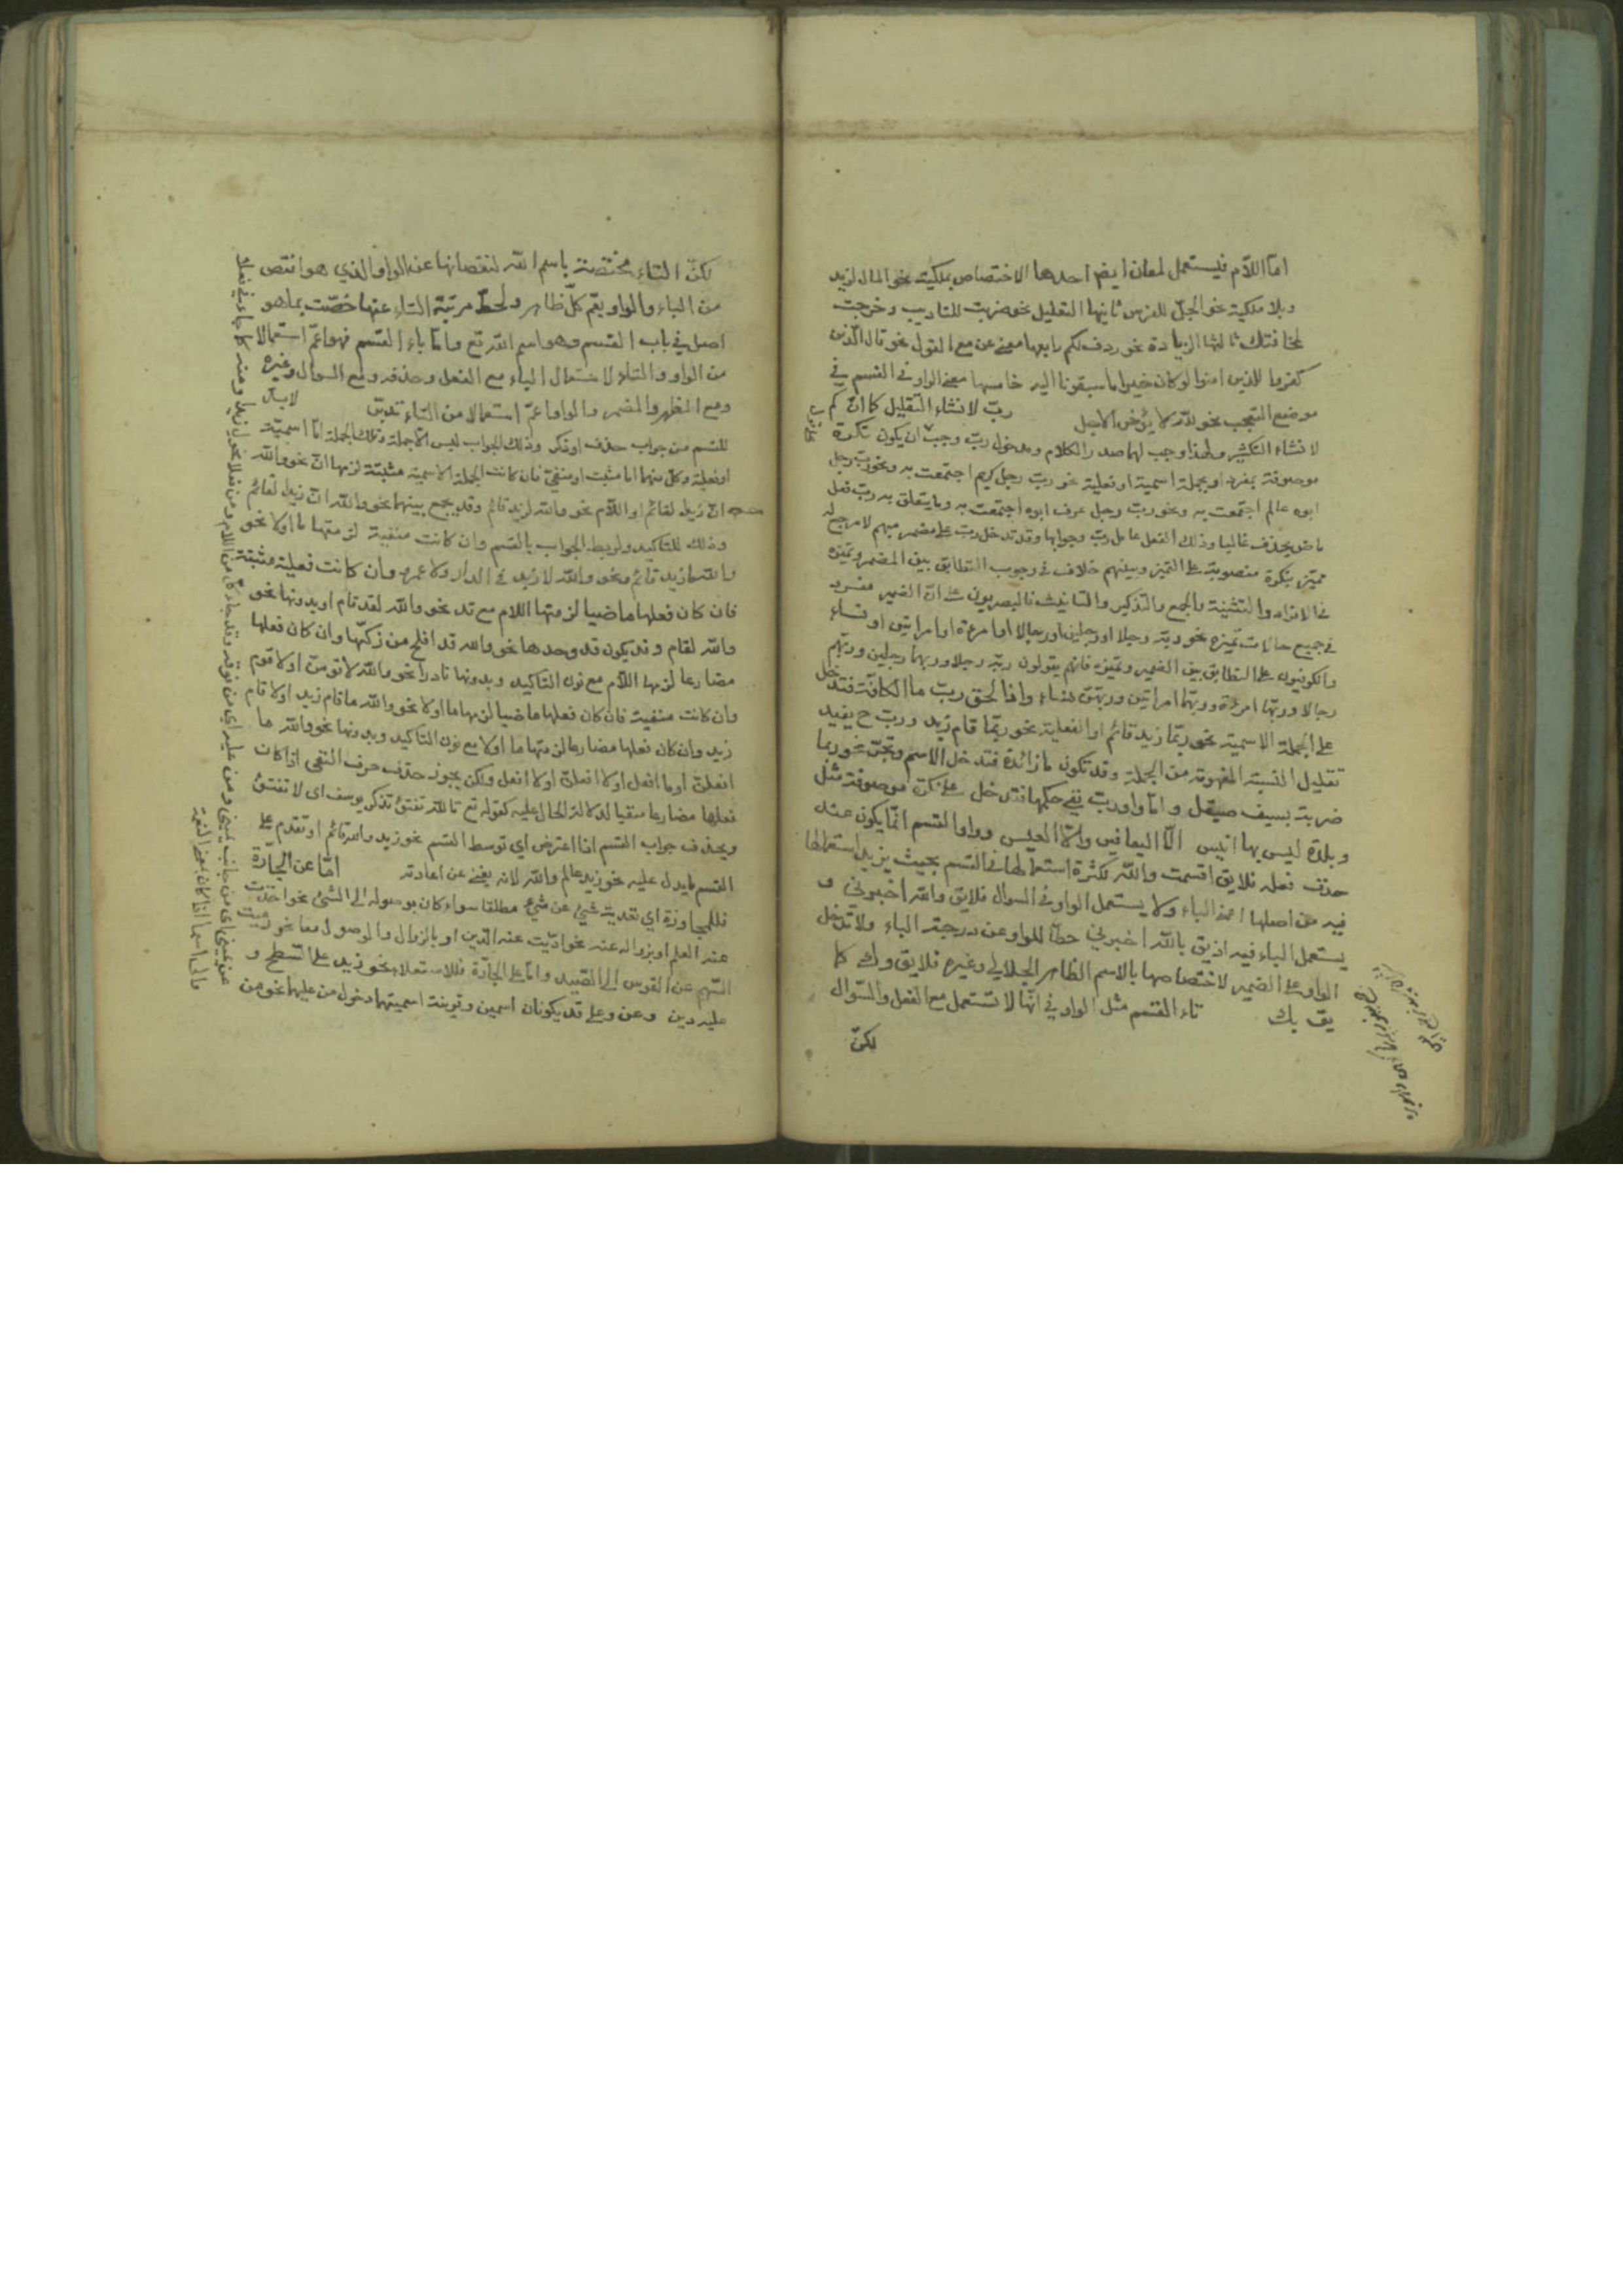 امّا اللّام فيستعمل لمعان ايضا احدها الاختصاص بملكية نحو المال لزيد
وبلا ملكية نحو الجلّ للفرس ثانيها التعليل نحو ضربت للتاديب وخرجت
لمخافتك ثالثها الزيادة نحو ردف لكم رابعها معنى عن مع القول نحو قال الذين
كفروا للذين امنوا لو كان خيرا ما سبقونا اليه خامسها معنى الواو في القسم في
موضع التعجب نحو لله لا يؤخر الاجل ربّ لانشاء التقليل كما انّ كم
لانشاء التكثير ولهذا وجب لها صدر الكلام ومدخول ربّ وجب ان يكون نكرة
موصوفة بمفرد او بجملة اسمية او فعلية نحو ربّ رجل كريم اجتمعت به ونحو ربّ رجل
ابوه عالم اجتمعت به ونحو ربّ رجل عرف ابوه اجتمعت به وما يتعلق به ربّ فعل
ماض يحذف غالبا وذلك الفعل عامل ربّ وجوابها وقد تدخل ربّ على مضمر مبهم لا مرجع له
مميّز بنكرة منصوبة على التميز وبينهم خلاف في وجوب التطابق بين المضمر وتميزه
في الافراد والتثنية والجمع والتذكير والتانيث فالبصريون على انّ الضمير مفرد
في جميع حالات تميزه نحو ربّه رجلا او رجلين او رجالا او امرءة او امراتين او نساء
والكوفيون على التطابق بين الضمير وتميزه فانهم يقولون ربّه رجلا وربهما رجلين وربّهم
رجالا وربّها امرءة وربهما امراتين وربّهنّ نساء واذا لحق ربّ ما الكافّة فتدخل
على الجملة الاسمية نحو ربّما زيد قائم او الفعلية نحو ربّما قام زيد وربّ ح يفيد
تقليل النسبة المفهومة من الجملة وقد تكون ما زائدة فتدخل الاسم وتجرّ نحو ربما
ضربة بسيف صيقل وامّا واو ربّ ففي حكمها فتدخل على نكرة موصوفة مثل
وبلدة ليس بها انيس الّا اليعافير والّا العيس وواو القسم انّما يكون عند
حذف فعله فلا يق اقسمت والله لكثرة استعمالها في القسم بحيث يزيد استعمالها
فيه عن اصلها اعني الباء ولا يستعمل الواو في السوال فلا يق والله اخبرني و
يستعمل الباء فيه اذ يق بالله اخبرني حطّا للواو عن درجة الباء ولا تدخل
الواو على الضمير لاختصاصها بالاسم الظاهر الجلالي وغيره فلا يق وك كما
يق بك تاء القسم مثل الواو في انّها لا تستعمل مع الفعل والسّوال
لكنّ
لكنّ التاء مختصة باسم الله لنقصانها عن الواو الذي هو انقص
من الباء والواو يعم كلّ ظاهر ولحطّ مرتبة التاء عنها خصّت بما هو
اصل في باب القسم وهو اسم الله تع وامّا باء القسم فهو اعمّ استعمالا
من الواو والتاء لاستعمال الباء مع الفعل وحذفه ومع السوال وغيره
ومع المظهر والمضمر والواو اعمّ استعمالا من التاء تدبّر لا بدّ
للقسم من جواب حذف او ذكر وذلك الجواب ليس الّا جملة وتلك الجملة امّا اسميّة
او فعلية وكل منهما اما مثبت او منفيّ فان كانت الجملة الاسمية مثبتة لزمها انّ نحو والله
انّ زيدا لقائم او اللّام نحو والله لزيد قائم وقد يجمع بينهما نحو والله انّ زيدا لقائم
وذلك للتاكيد ولربط الجواب بالقسم وان كانت منفية لزمتها ما او لا نحو
والله ما زيد قائم ونحو والله لا زيد في الدار ولا عمرو وان كانت فعلية مثبتة
فان كان فعلها ماضيا لزمتها اللام مع قد نحو والله لقد قام او بدونها نحو
والله لقام وقد يكون قد وحدها نحو والله قد افلح من زكّيها وان كان فعلها
مضارعا لزمها اللّام مع نون التاكيد وبدونها نادرا نحو والله لاقومنّ او لاقوم
وان كانت منفية فان كان فعلها ماضيا لزمها ما او لا نحو والله ما قام زيد او لا قام
زيد وان كان فعلها مضارعا لزمتها ما او لا مع نون التاكيد وبدونها نحو والله ما
افعلنّ او ما افعل او لا افعلنّ او لا افعل ولكن يجوز حذف حرف النفي اذا كان
فعلها مضارعا منفيا لدلالة الحال عليه كقوله تع تالله تفتؤ تذكر يوسف اى لا تفتؤ
ويحذف جواب القسم اذا اعترض اي توسط القسم نحو زيد والله قائم او تقدم على
القسم ما يدل عليه نحو زيد عالم والله لانه يغني عن اعادته امّا عن الجارّة
فللمجاوزة اي تعدية شيء عن شيء مطلقا سواء كان بوصوله الى الشئ نحو اخذت
عنه العلم او بزواله عنه نحو ادّيت عنه الدّين او بالزوال والوصول معا نحو رميت
السّهم عن القوس الى الصّيد وامّا على الجارّة فللاستعلاء نحو زيد على السّطح و
عليه دين وعن وعلى قد يكونان اسمين وقرينة اسميتهما دخول من عليهما نحو من
عن يميني اي من جانب يميني ومن عليه اي من فوقه